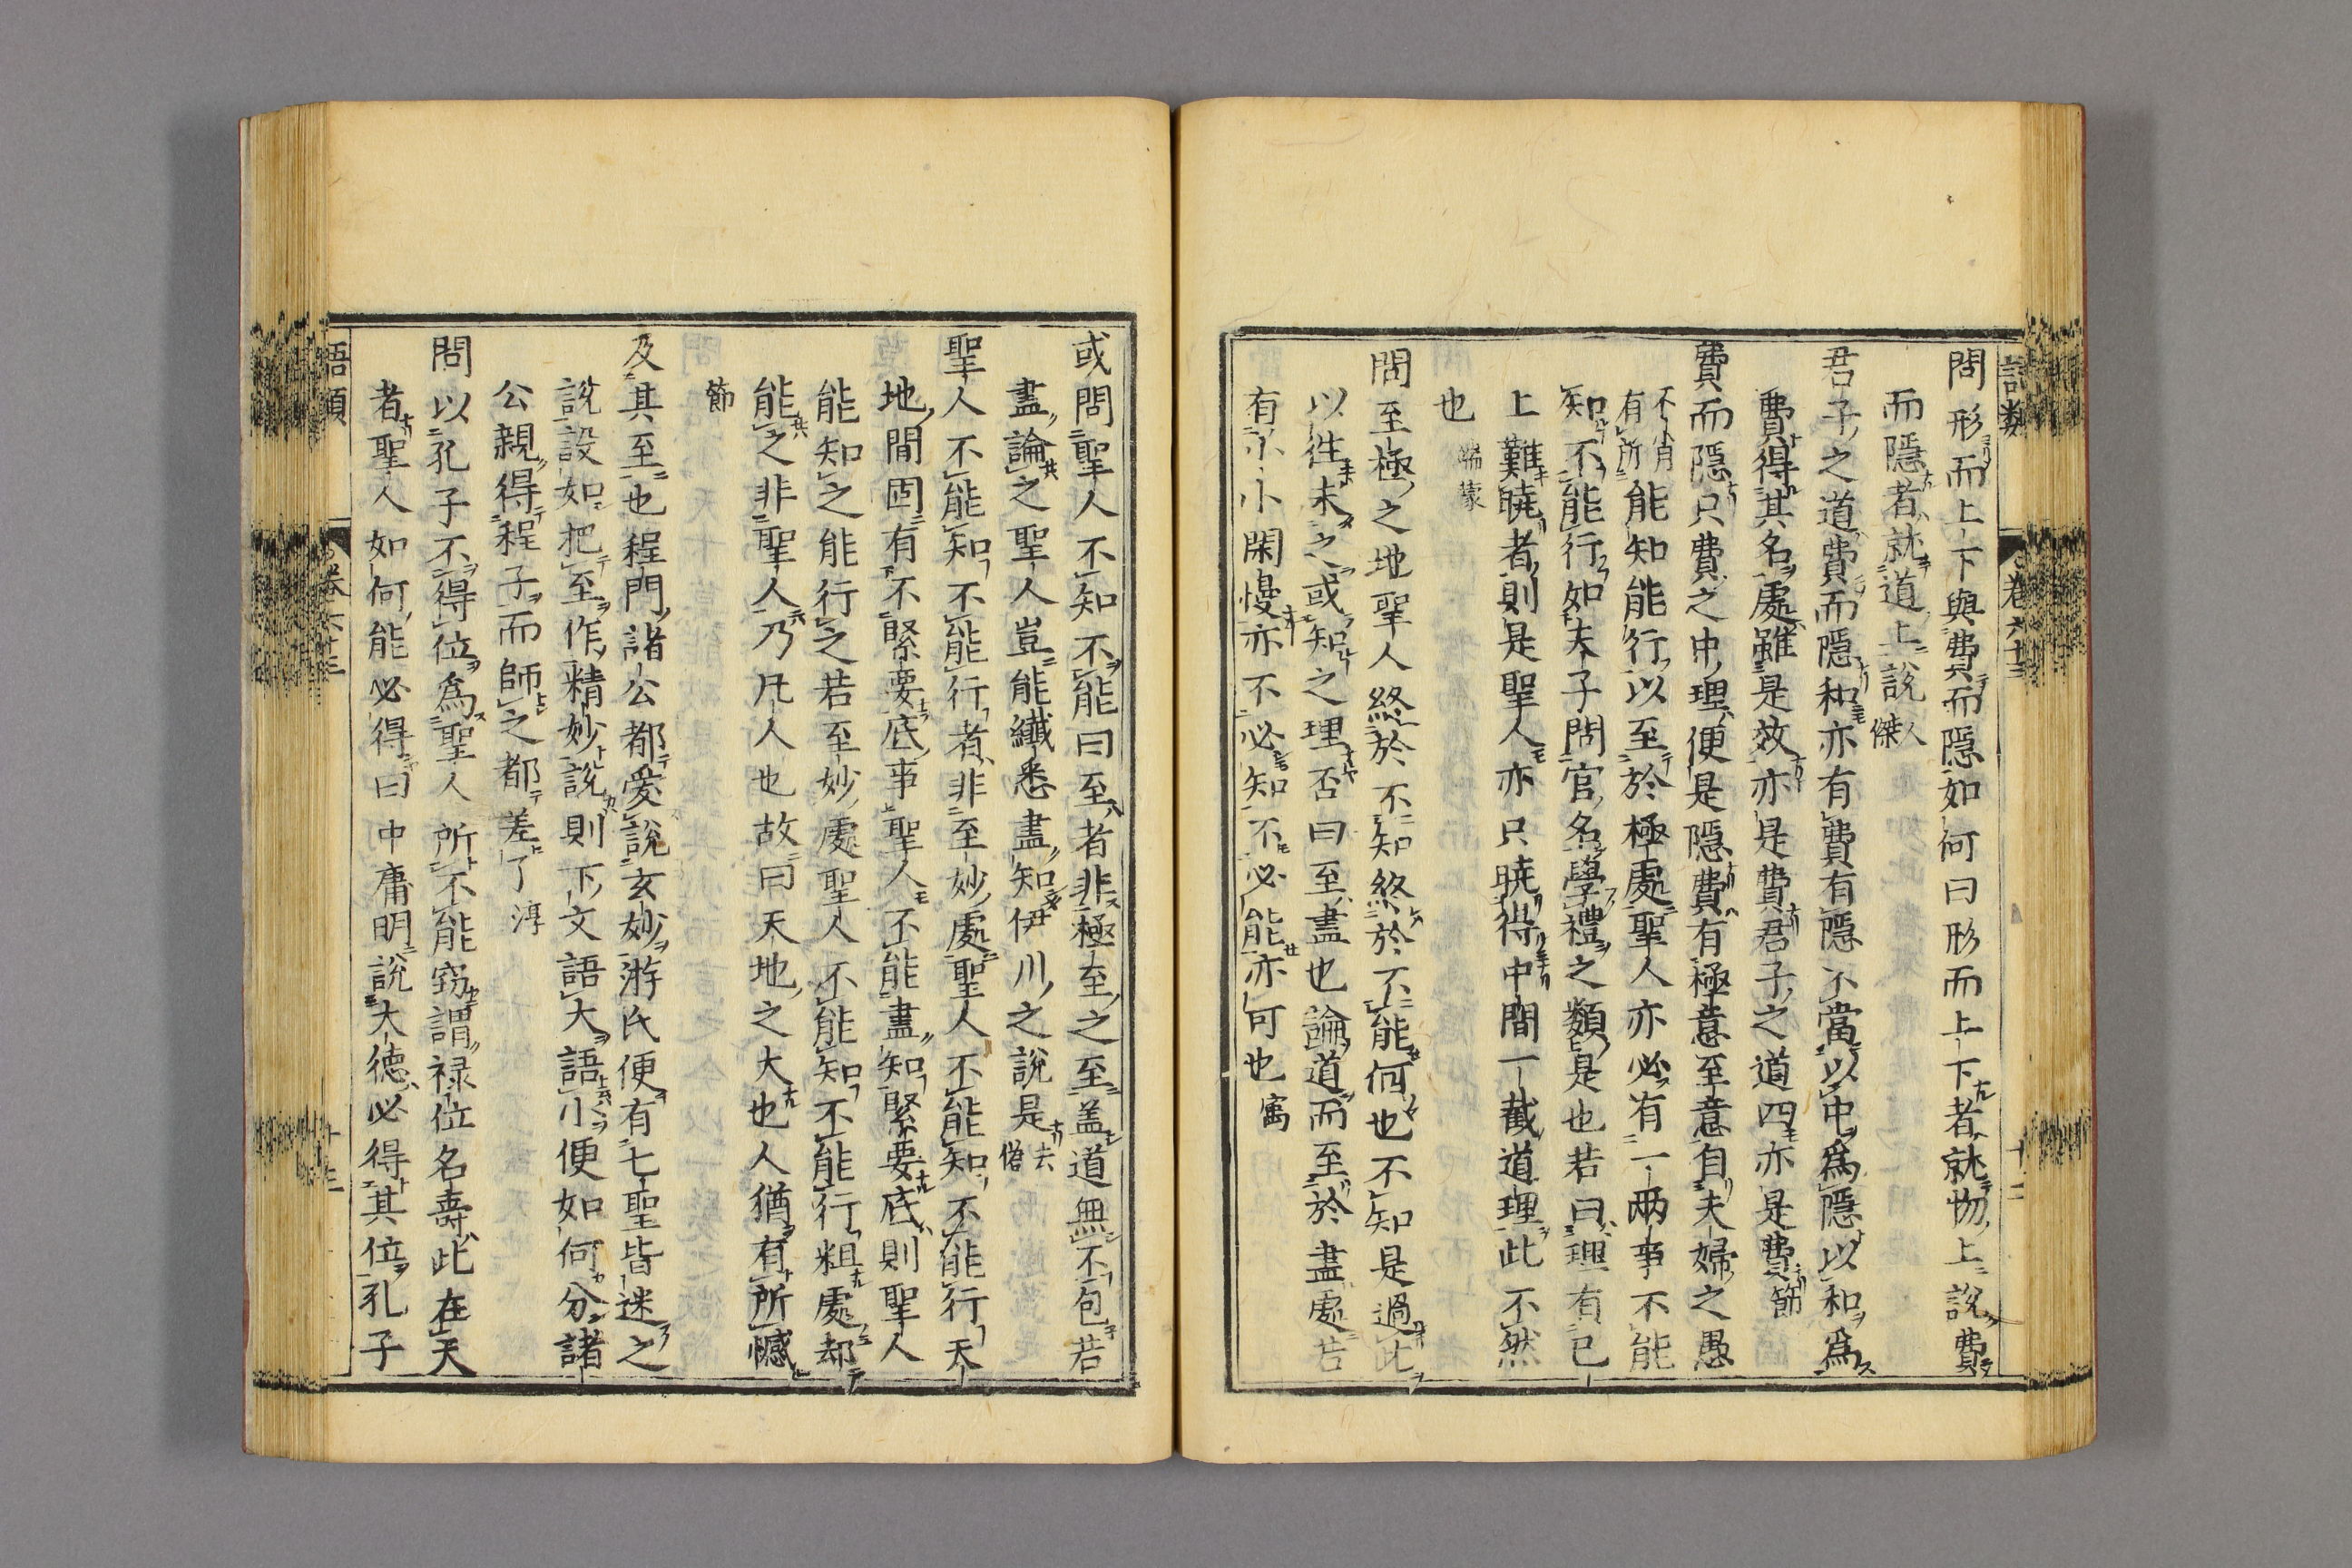 語類 卷六十三 十二
問形而上下與費而隱如何曰形而上下者就物上説費
而隱者就道上説 人傑
君子之道費而隱和亦有費有隱不當以中爲隱以和爲
費得其名處雖是效亦是費君子之道四亦是費 節
費而隱只費之中理便是隱費有極意至意自夫婦之愚
不肖有所能知能行以至於極處聖人亦必有一兩事不能
知不能行如夫子問官名學禮之類是也若曰理有已
上難曉者則是聖人亦只曉得中間一截道理此不然
也 端蒙
問至極之地聖人終於不知終於不能何也不知是過此
以徃未之或知之理否曰至盡也論道而至於盡處若
有小小閑慢亦不必知不必能亦可也 㝢
或問聖人不知不能曰至者非極至之至蓋道無不包若
盡論之聖人豈能纎悉盡知伊川之說是 去僞
聖人不能知不能行者非至妙處聖人不能知不能行天
地間固有不緊要底事聖人不能盡知緊要底則聖人
能知之能行之若至妙處聖人不能知不能行粗處却
能之非聖人乃凡人也故曰天地之大也人猶有所憾
節
及其至也程門諸公都愛說玄妙游氏便有七聖皆迷之
説設如把至作精妙說則下文語大語小便如何分諸
公親得程子而師之都差了 淳
問以孔子不得位爲聖人所不能竊謂禄位名壽此在天
者聖人如何能必得曰中庸明說大徳必得其位孔子
語類 卷六十三 十三